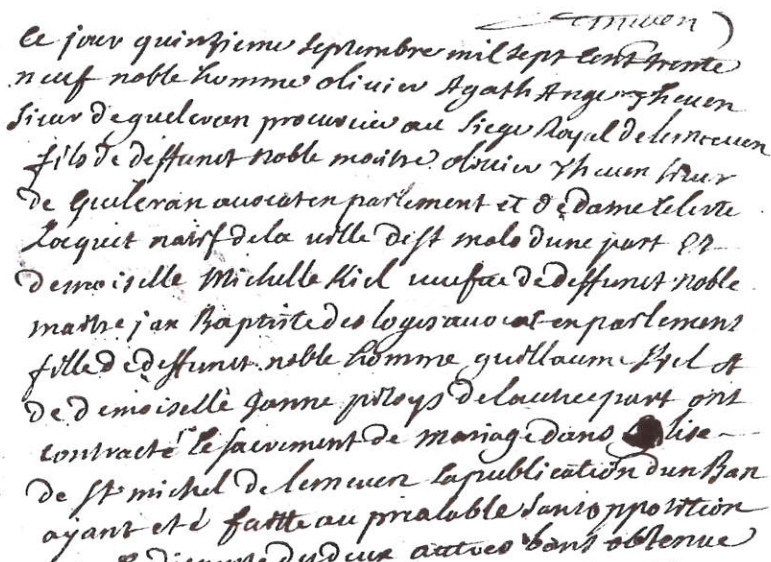 ce jour quinzieme septembre mil sept cent trente
neuf noble homme olivier Agath Ange Theven
sieur de gueleran procureur au siege Royal de lesneven
fils de deffunct noble maitre olivier Theven sieur
de Gueleran avocat en parlement et de dame Celeste
Loquet natif de la ville de st malo dune part et
demoiselle Michelle Kiel veufve de deffunct noble
maitre jan Baptiste des loges avocat en parlement
fille de deffunct noble homme guillaume Kiel et
de demoiselle Janne de lautre part ont
contracté le sacrement de mariage dans lise
de st michel de lesneven la publication dun Ban
ayant eté faitte au prealable sans opposition
dispense des deux autres bans obtenue